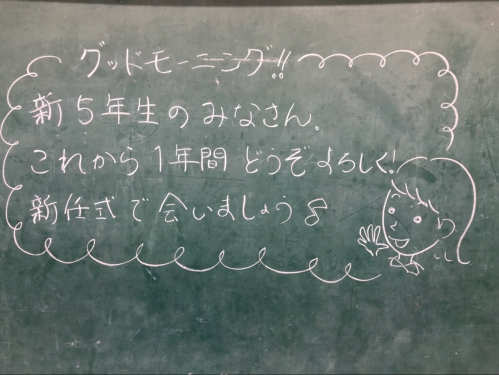 グッドモーニング!!
新5年生のみなさん。
これから1年間どうぞよろしく!
新任式で会いましょう